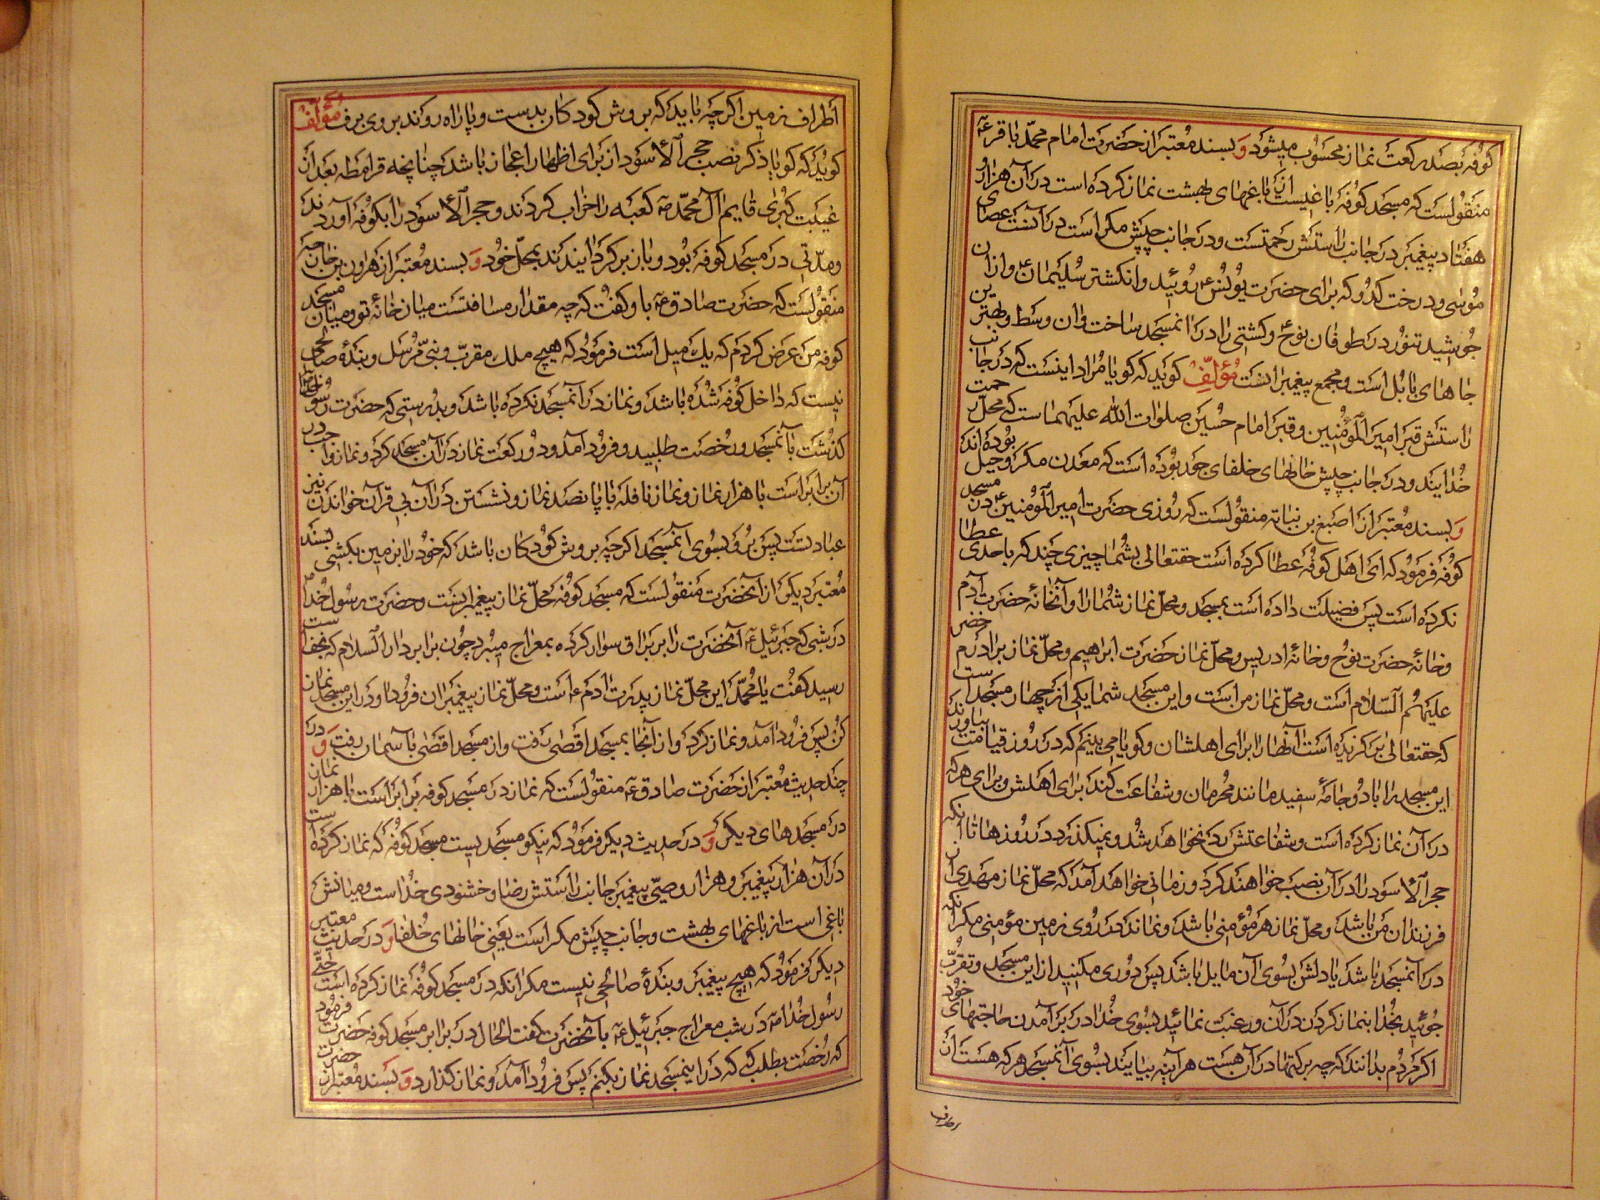 کوفه بصد رکعت نماز محسوب میشود و بسند معتبر از حضرت امام محمّد باقر ع
منقولست که مسجد کوفه باغیست از باغهای بهشت نماز کرده است در آن هزار و
هفتاد پیغمبر در جانب راستش رحمتست و در جانب چپش مکر است در آنست عصای
موسی و درخت کدو که برای حضرت یونس ع روئید و انکشتر سلیمان ع و از آن
جوشید تنور در طوفان نوح ع و کشتی را در آنمسجد ساخت و آن وسط و بهترین
جاهای بابل است و مجمع پیغمبرانست مؤلّف کوید که کویا مراد اینست که در جانب
راستش قبر امیر المؤمنین و قبر امام حسین صلوات الله علیهما است که محلّ رحمت
خدایند و در جانب چپش خانهای خلفای جور بوده است که معدن مکر و حیل بوده‌اند
و بسند معتبر از اصبغ بن نباته منقولست که روزی حضرت امیر المؤمنین ع در مسجد
کوفه فرمود که ای اهل کوفه عطا کرده است حقتعالی بشما چیزی چند که باحدی عطا
نکرده است پس فضیلت داده است بمسجد و محلّ نماز شما را و آنخانهٔ حضرت آدم
و خانهٔ حضرت نوح و خانهٔ ادریس و محلّ نماز حضرت ابرهیم و محلّ نماز برادرم خضر
علیهم السّلام است و محلّ نماز من است و این مسجد شما یکی از چهار مسجد است
که حقتعالی برکزیده است آنها را برای اهلشان و کویا می بینم که در روز قیامت بیاورند
این مسجد را با دو جامهٔ سفید مانند محرمان و شفاعت کند برای اهلش و برای هر که
در آن نماز کرده است و شفاعتش رد نخواهد شد و نمیکذرد روزها تا آنکه
حجر الاسود را در آن نصب خواهند کرد و زمانی خواهد آمد که محلّ نماز مهدی از
فرزندان من باشد و محلّ نماز هر مؤمنی باشد و نماند در روی زمین مؤمنی مکر آنکه
در آنمسجد باشد یا دلش بسوی آن مایل باشد پس دوری مکنید از این مسجد و تقرّب
جوئید بخدا بنماز کردن در آن و رغبت نمائید بسوی خدا در برآمدن حاجتهای خود
اکر مردم بدانند که چه برکتها در آن هست هرآینه بیایند بسوی آنمسجد هر که هست از
اطراف
اطراف زمین اکرچه باید که بروش کودکان بدست و پا راه روند بر روی برف مؤلّف
کوید که کویا ذکر نصب حجر الاسود از برای اظهار اعجاز باشد چنانچه قرامطه بعد از
غیبت کبری قایم ال محمّد ص کعبه را خراب کردند و حجر الاسود را بکوفه آوردند
و مدّتی در مسجد کوفه بود و باز برکردانیدند بمحلّ خود و بسند معتبر از هرون بن خارجه
منقولست که حضرت صادق ع باو کفت که چه مقدار مسافتست میان خانهٔ تو و میان مسجد
کوفه من عرض کردم که یک میل است فرمود که هیچ ملک مقرّب و نبیّ مرسل و بندهٔ صالحی
نیست که داخل کوفه شده باشد و نماز در آنمسجد نکرده باشد و بدرستی که حضرت رسول خدا ص
کذشت بآنمسجد و رخصت طلبید و فرود آمد و دو رکعت نماز در آن مسجد کرد و نماز واجب در
آن برابر است با هزار نماز و نماز نافله با پانصد نماز و نشستن در آن بی قرآن خواندن نیز
عبادتست پس برو بسوی آنمسجد اکرچه بروش کودکان باشد که خود را بزمین بکشی بسند
معتبر دیکر از آنحضرت منقولست که مسجد کوفه محلّ نماز پیغمبرانست و حضرت رسول خدا ص
در شبی که جبرئیل ع آنحضرت را بر براق سوار کرده بمعراج میبرد چون برابر دار السّلام که نجفست
رسید کفت یا محمّد این محلّ نماز پدرت آدم ع است و محلّ نماز پیغمبران فرود آ و در این مسجد نماز
کن پس فرود آمد و نماز کرد و از آنجا بمسجد اقصی رفت و از مسجد اقصی باسمان رفت و در
چند حدیث معتبر از حضرت صادق ع منقولست که نماز در مسجد کوفه برابر است با هزار نماز
در مسجدهای دیکر و در حدیث دیکر فرمود که نیکو مسجدیست مسجد کوفه که نماز کرده است
در آن هزار پیغمبر و هزار وصیّ پیغمبر جانب راستش رضا و خشنودی خداست و میانش
باغی است از باغهای بهشت و جانب چپش مکر است یعنی خانهای خلفا و در حدیث معتبر
دیکر فرمود که هیچ پیغمبر و بندهٔ صالحی نیست مکر آنکه در مسجد کوفه نماز کرده است حتّی
رسول خدا ص در شب معراج جبرئیل ع بآنحضرت کفت الحال در برابر مسجد کوفه حضرت فرمود
که رخصت بطلب که در اینمسجد نماز بکنم پس فرود آمد و نماز کذارد و بسند معتبر از حضرت